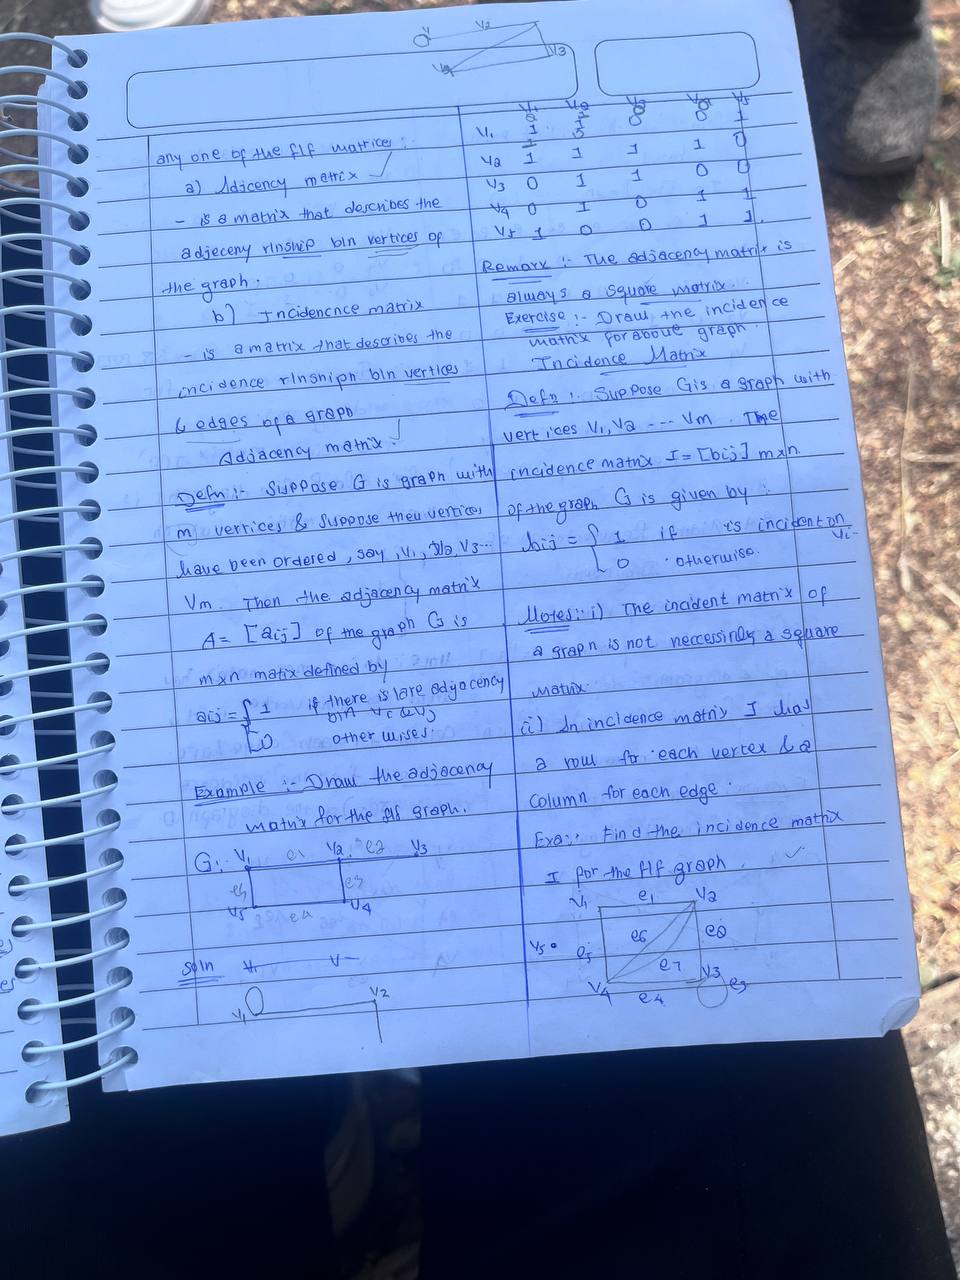 V2
V3
V4
any one of the flf matrices :
a) Adicency matrix
- is a matrix that describes the
adjeceny rlnship bln vertices of
the graph.
b) Incidencnce matrix
- is a matrix that describes the
incidence rlnshipn bln vertices
& edges of a graph
Adjacency matrix.
Defn :- Suppose G is graph with
m vertices & suppose theu vertices
have been ordered, say, V1, V2, V3 ...
Vm. Then the adjacency matrix
A = [aij] of the graph G is
mxn matix defined by
aij = { 1 if there is lare adjacency
bln Vi & Vj
0 other wises.
Example :- Draw the adjacency
matrix for the flf graph.
G: V1 e1 V2 e2 V3
e5 e3
V5 e4 V4
soln
V1 V2
V1 V2 V3 V4 V5
V1 1 0 0 1
V2 1 1 1 1 0
V3 0 1 1 0 0
V4 0 1 0 1 1
V5 1 0 0 1 1.
Remark :- The adjacency matrix is
always a square matrix.
Exercise :- Draw the incidence
matrix for above graph.
Incidence Matrix
Defn :- Suppose G is a graph with
vertices V1, V2 --- Vm. The
incidence matrix I = [bij] mxn
of the graph G is given by :
bij = { 1 if is incident on
Vi
0 otherwise.
Notes :- i) The incident matrix of
a graph is not neccessirily a square
matrix.
(ii) In incidence matrix I has
a row for each vertex & a
column for each edge.
Exa:- Find the incidence matrix
I for the flf graph
V1 e1 V2
V5 e5 e6 e2
e7 V3
V4 e4 e3